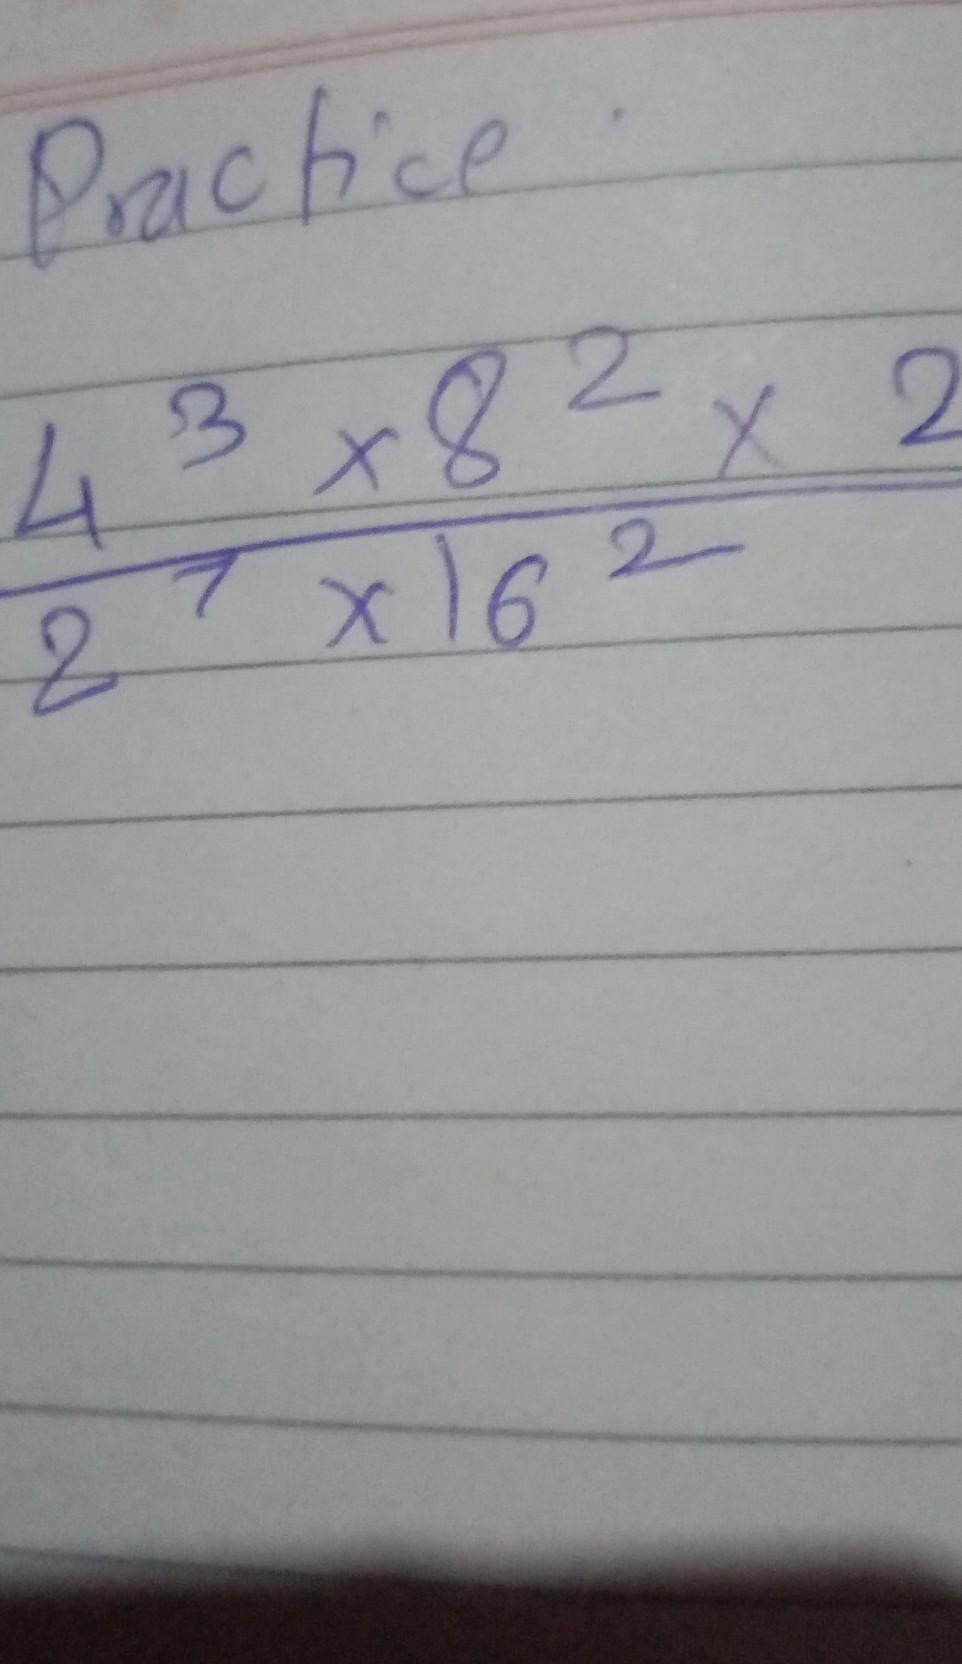 Practice.
4³ × 8² × 2
2⁷ × 16²